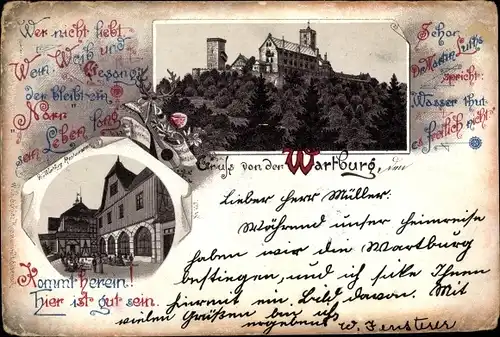 Wer nicht liebt
Wein Weib und
Gesang
der bleibt ein
"Narr"
sein Leben lang
Schon
Dr. Martin Luther
spricht:
Wasser thut
es freilich nicht
Gruss von der Wartburg.
Kommt herein!
Hier ist gut sein.
Lieber Herr Müller.
Während unser Heimreise
haben wir die Wartburg
bestiegen, und ich sike Ihnen
hiermit ein Bild davon. Mit
vielen Grüßen bin ich
ergebenst W.